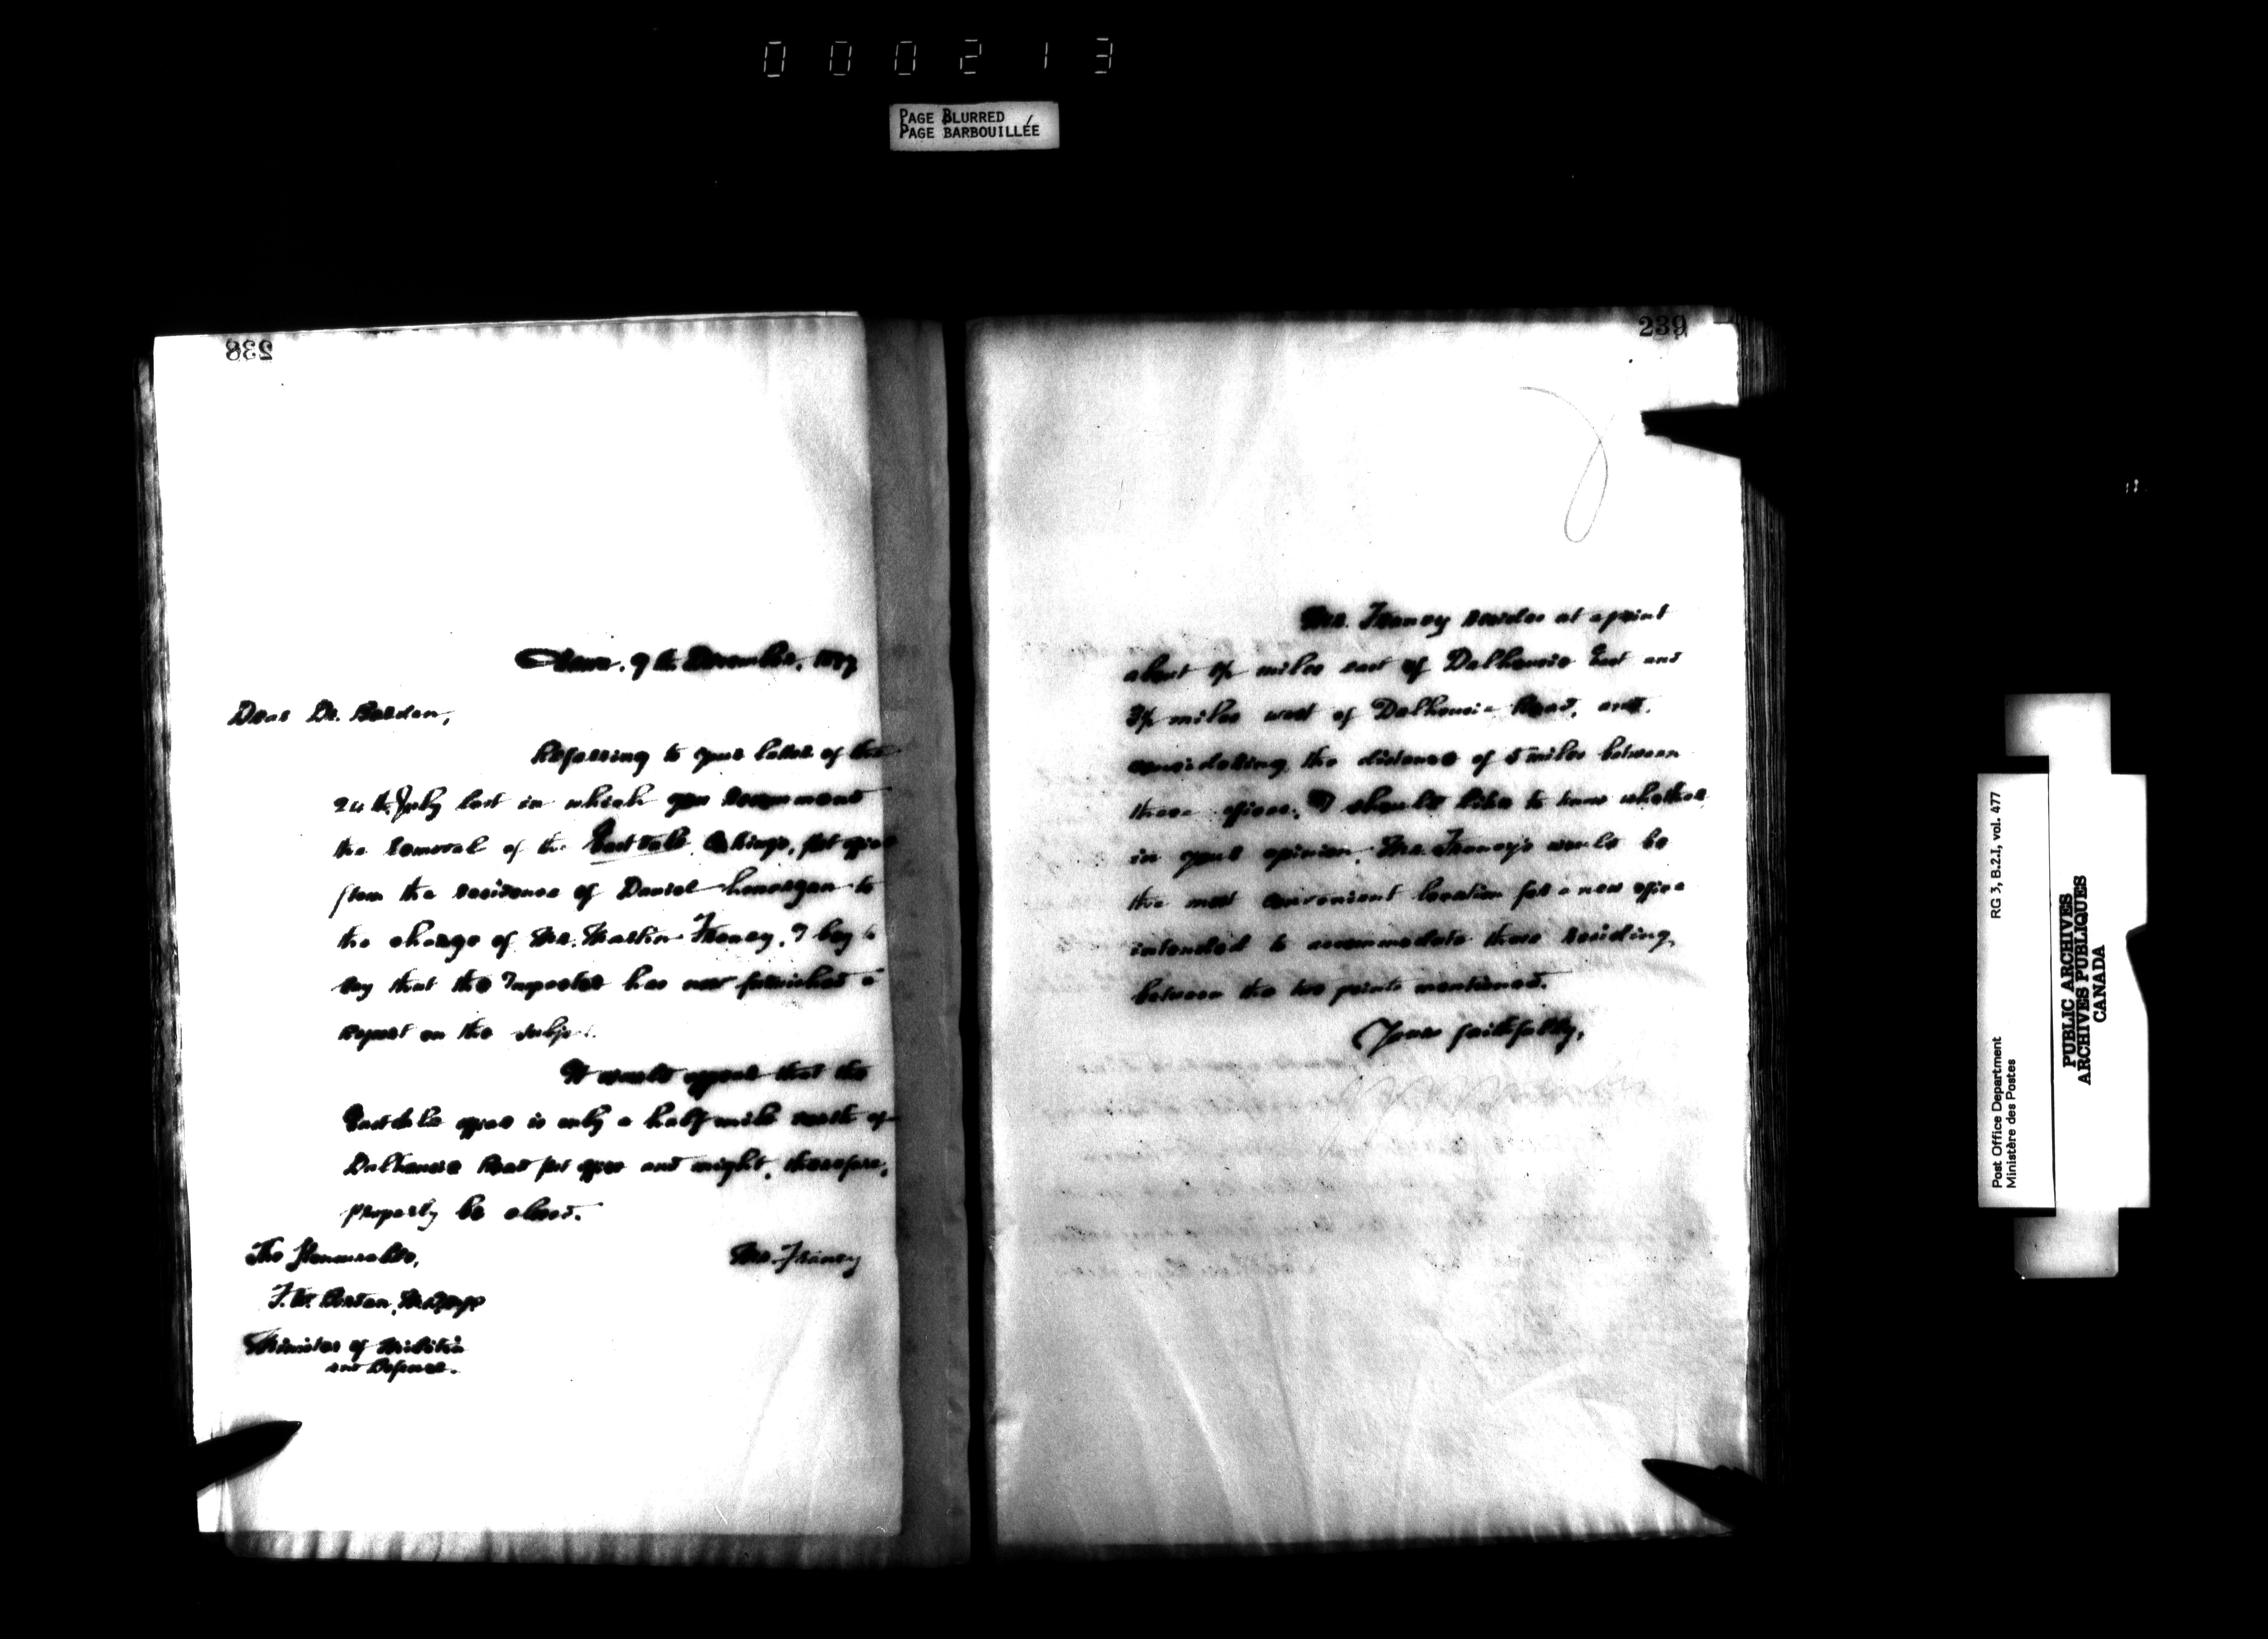 000213
PAGE BLURRED
PAGE BARBOUILLÉE
238
Ottawa, 9th December, 1897
Dear Dr. Borden,
Referring to your letter of the
24th July last in which you recommend
the removal of the East Dale, Co. Kings, post office
from the residence of Daniel Lonergan to
the charge of Mr. Martin Franey, I beg to
say that the Inspector has now furnished a
report on the subject.
It would appear that the
East dale office is only a half mile north of
Dalhousie Road post office and might, therefore,
properly be closed.
Mr. Franey
The Honourable,
F. W. Borden, M.D., M.P.
Minister of Militia
and Defence.
239
Mr. Franey resides at a point
about 1½ miles east of Dalhousie East and
3½ miles west of Dalhousie Road, and,
considering the distance of 5 miles between
these offices, I should like to know whether,
in your opinion, Mr. Franey's would be
the most convenient location for a new office
intended to accommodate those residing
between the two points mentioned.
Yours faithfully,
Post Office Department
Ministère des Postes
RG 3, B.2.I, vol. 477
PUBLIC ARCHIVES
ARCHIVES PUBLIQUES
CANADA